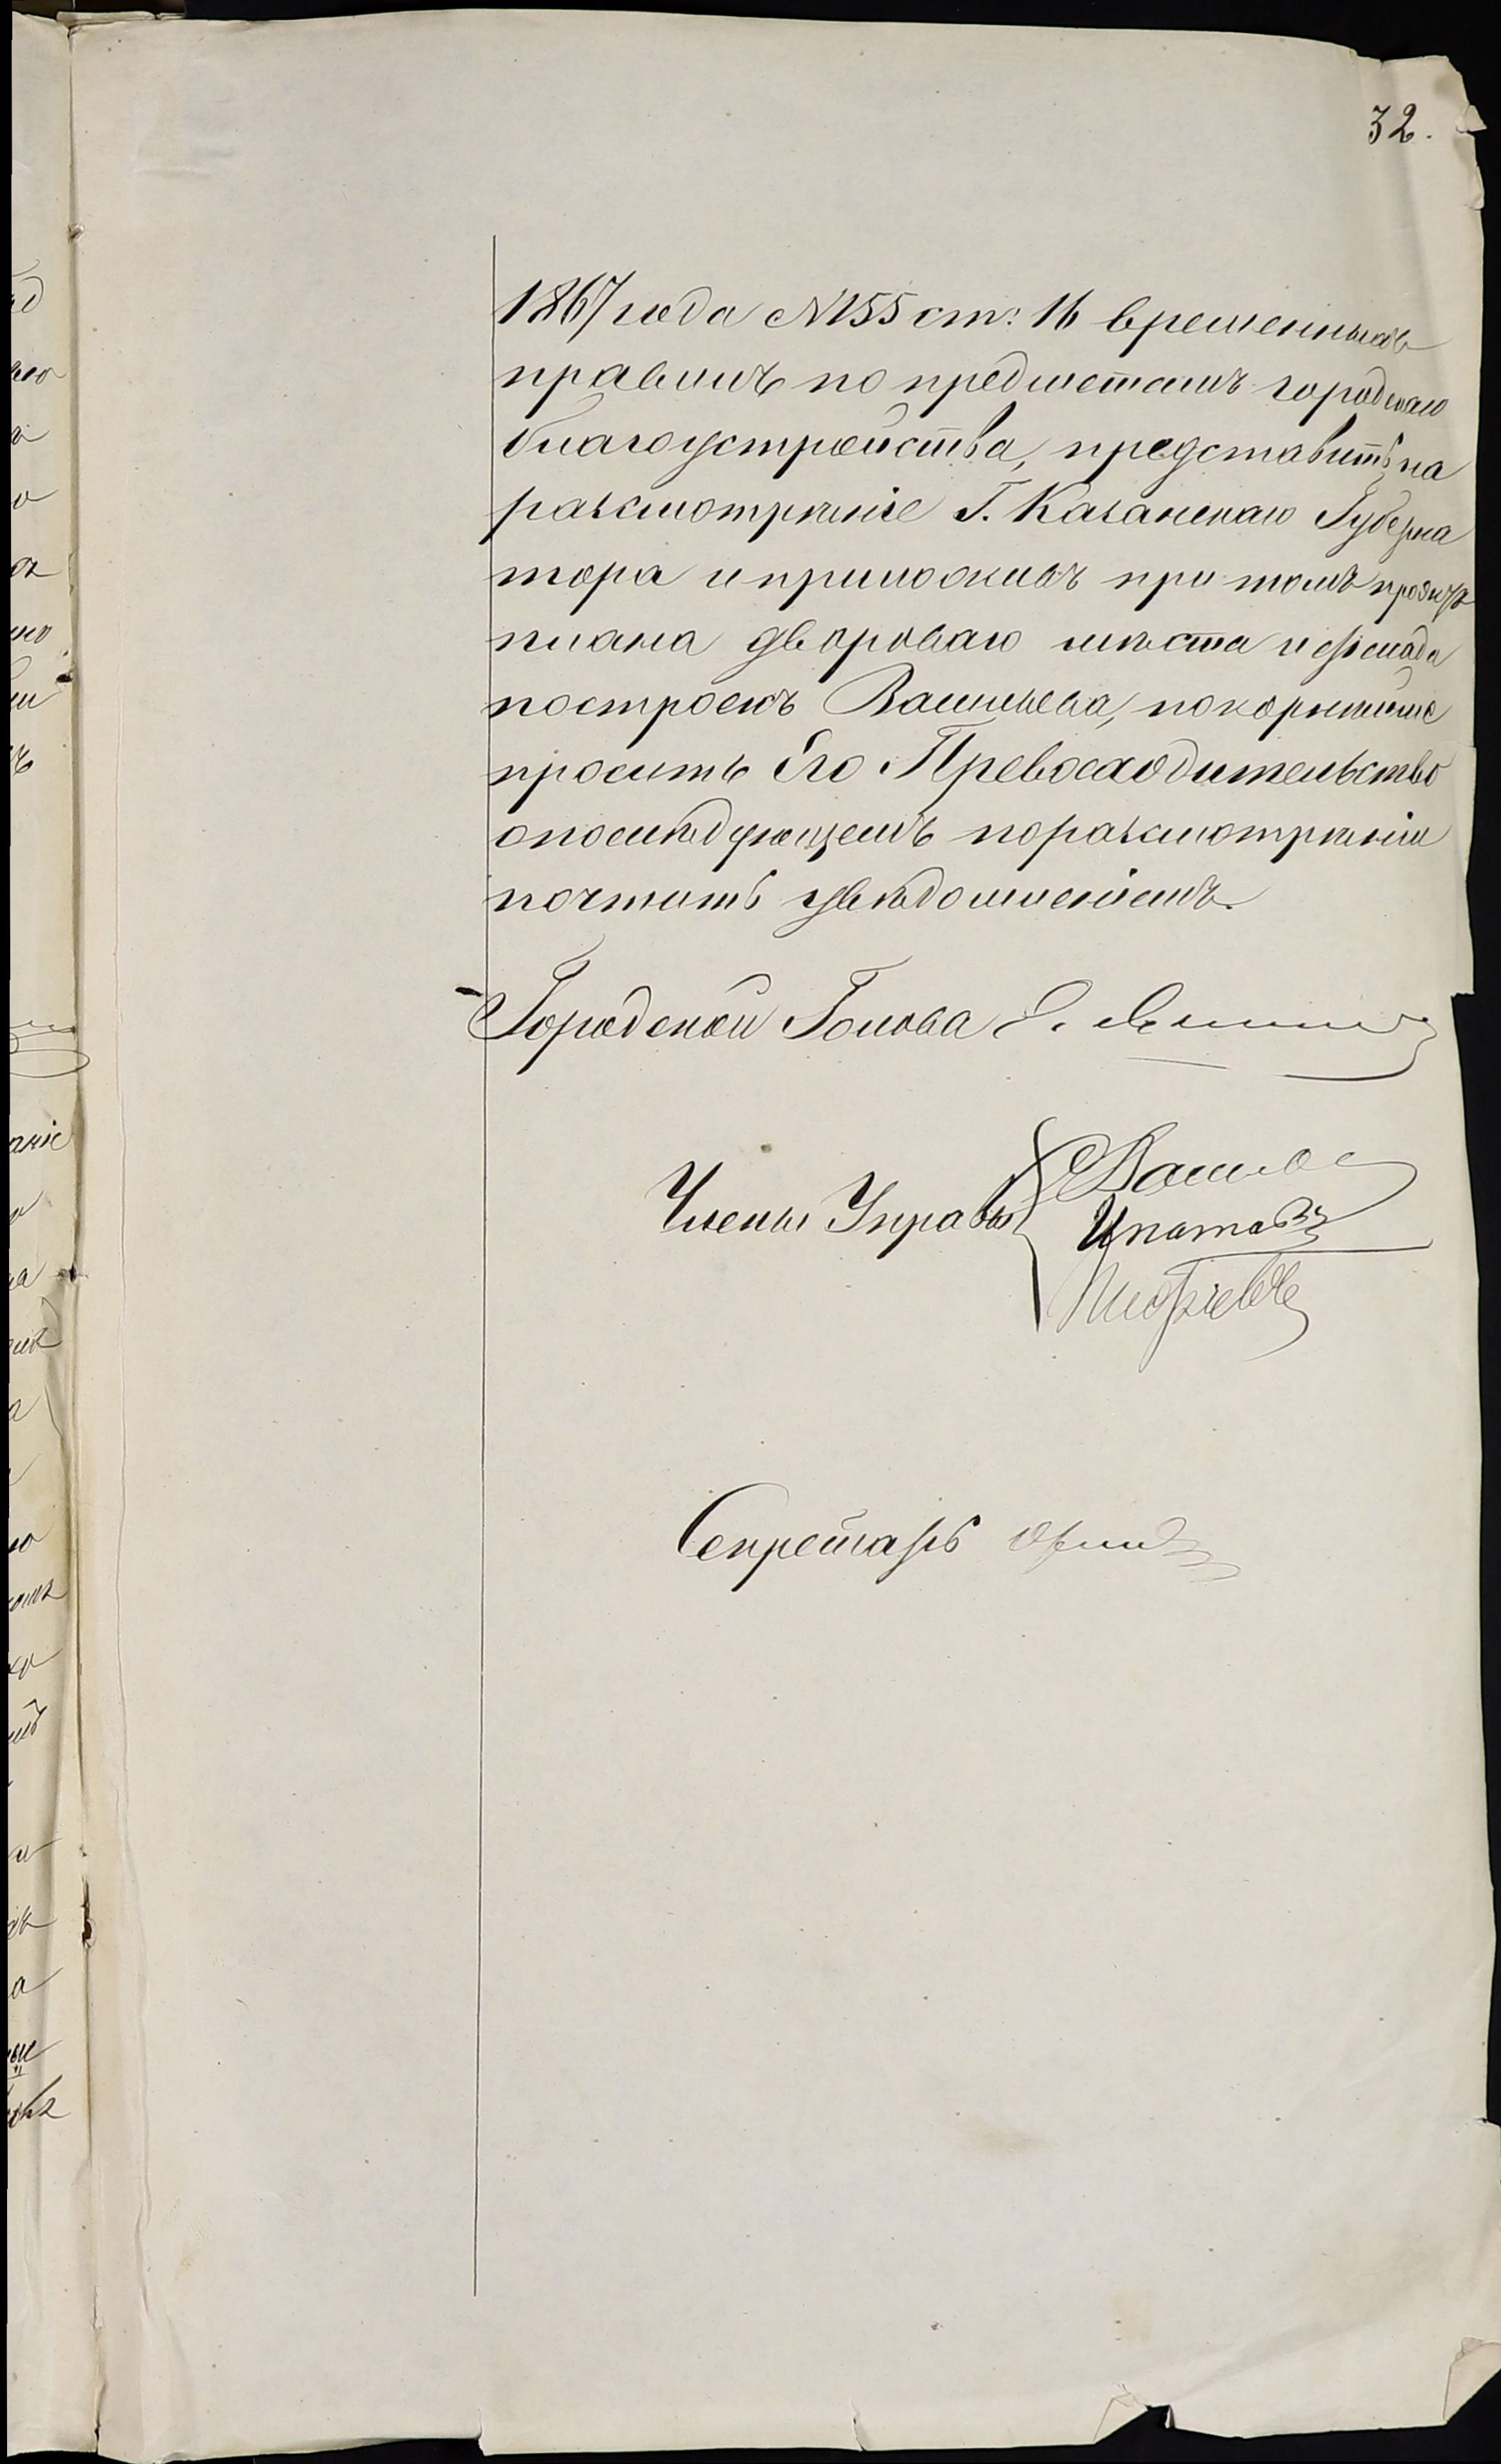 32.
1867 года N155 ст: 16 временныхъ
правилъ по предметамъ городскаго
благоустройства, представить на
разсмотрѣніе Г. Казанскаго Губерна
тора и приложивъ при томъ проэктъ
плана двороваго мѣста и фасада
построекъ Васильева, покорнѣйше
просить Его Превосходительство
опослѣдующемъ поразсмотрѣніи
почтить увѣдомленіемъ.
Городской Голова
Члены Управы
Ипатовъ
Секретарь